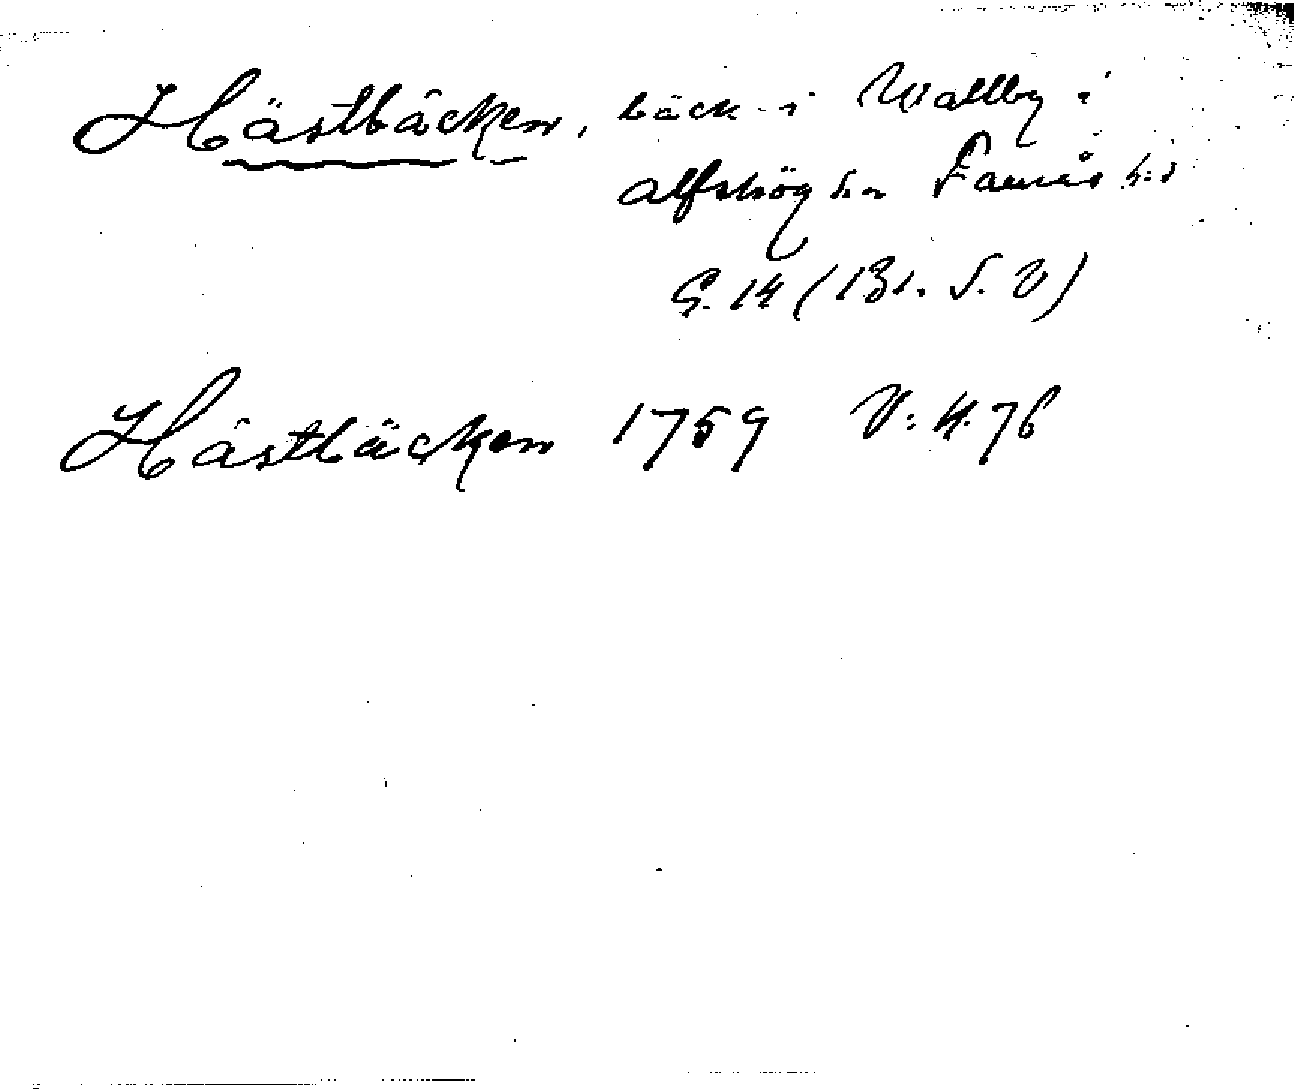 Hästbäcken, bäck i Wallby i
Alfshög sn Faurås h:d
G. 14 (Bl. S. V)
Hästbäcken 1759 V: 4. 76